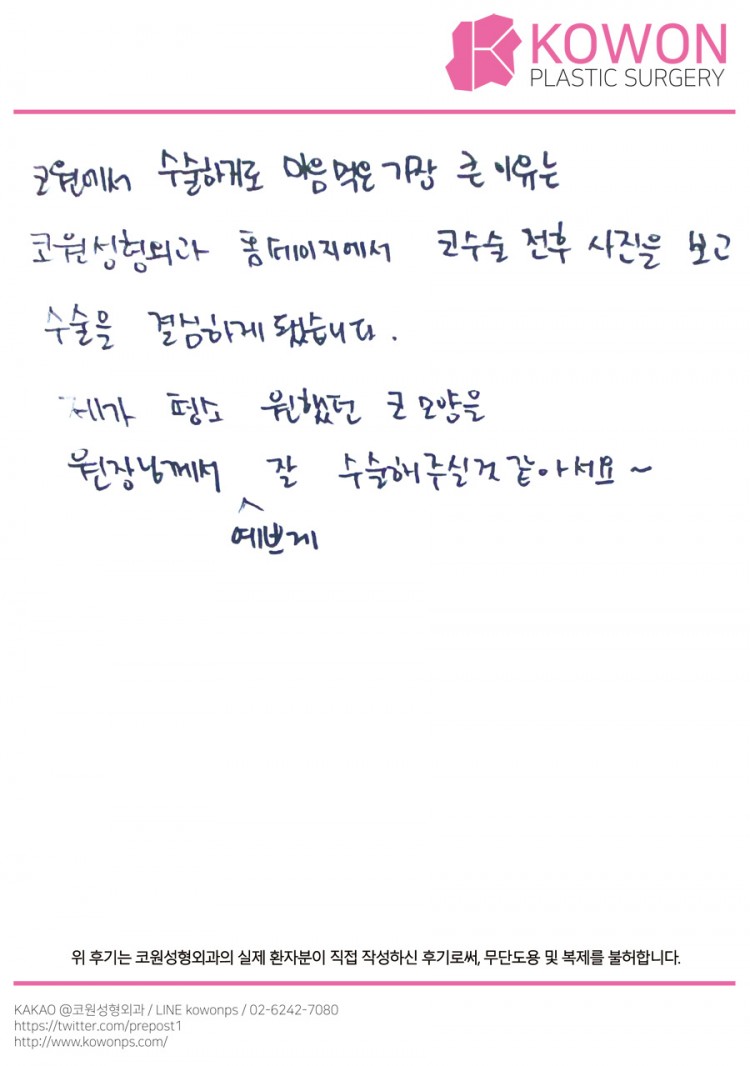 KOWON
PLASTIC SURGERY
코원에서 수술하기로 마음먹은 가장 큰 이유는
코원성형외과 홈페이지에서 코수술 전후 사진을 보고
수술을 결심하게 됐습니다.
제가 평소 원했던 코 모양을
원장님께서 잘 수술해주실것 같아서요~
예쁘게
위 후기는 코원성형외과의 실제 환자분이 직접 작성하신 후기로써, 무단도용 및 복제를 불허합니다.
KAKAO @코원성형외과 / LINE kowonps / 02-6242-7080
https://twitter.com/prepost1
http://www.kowonps.com/